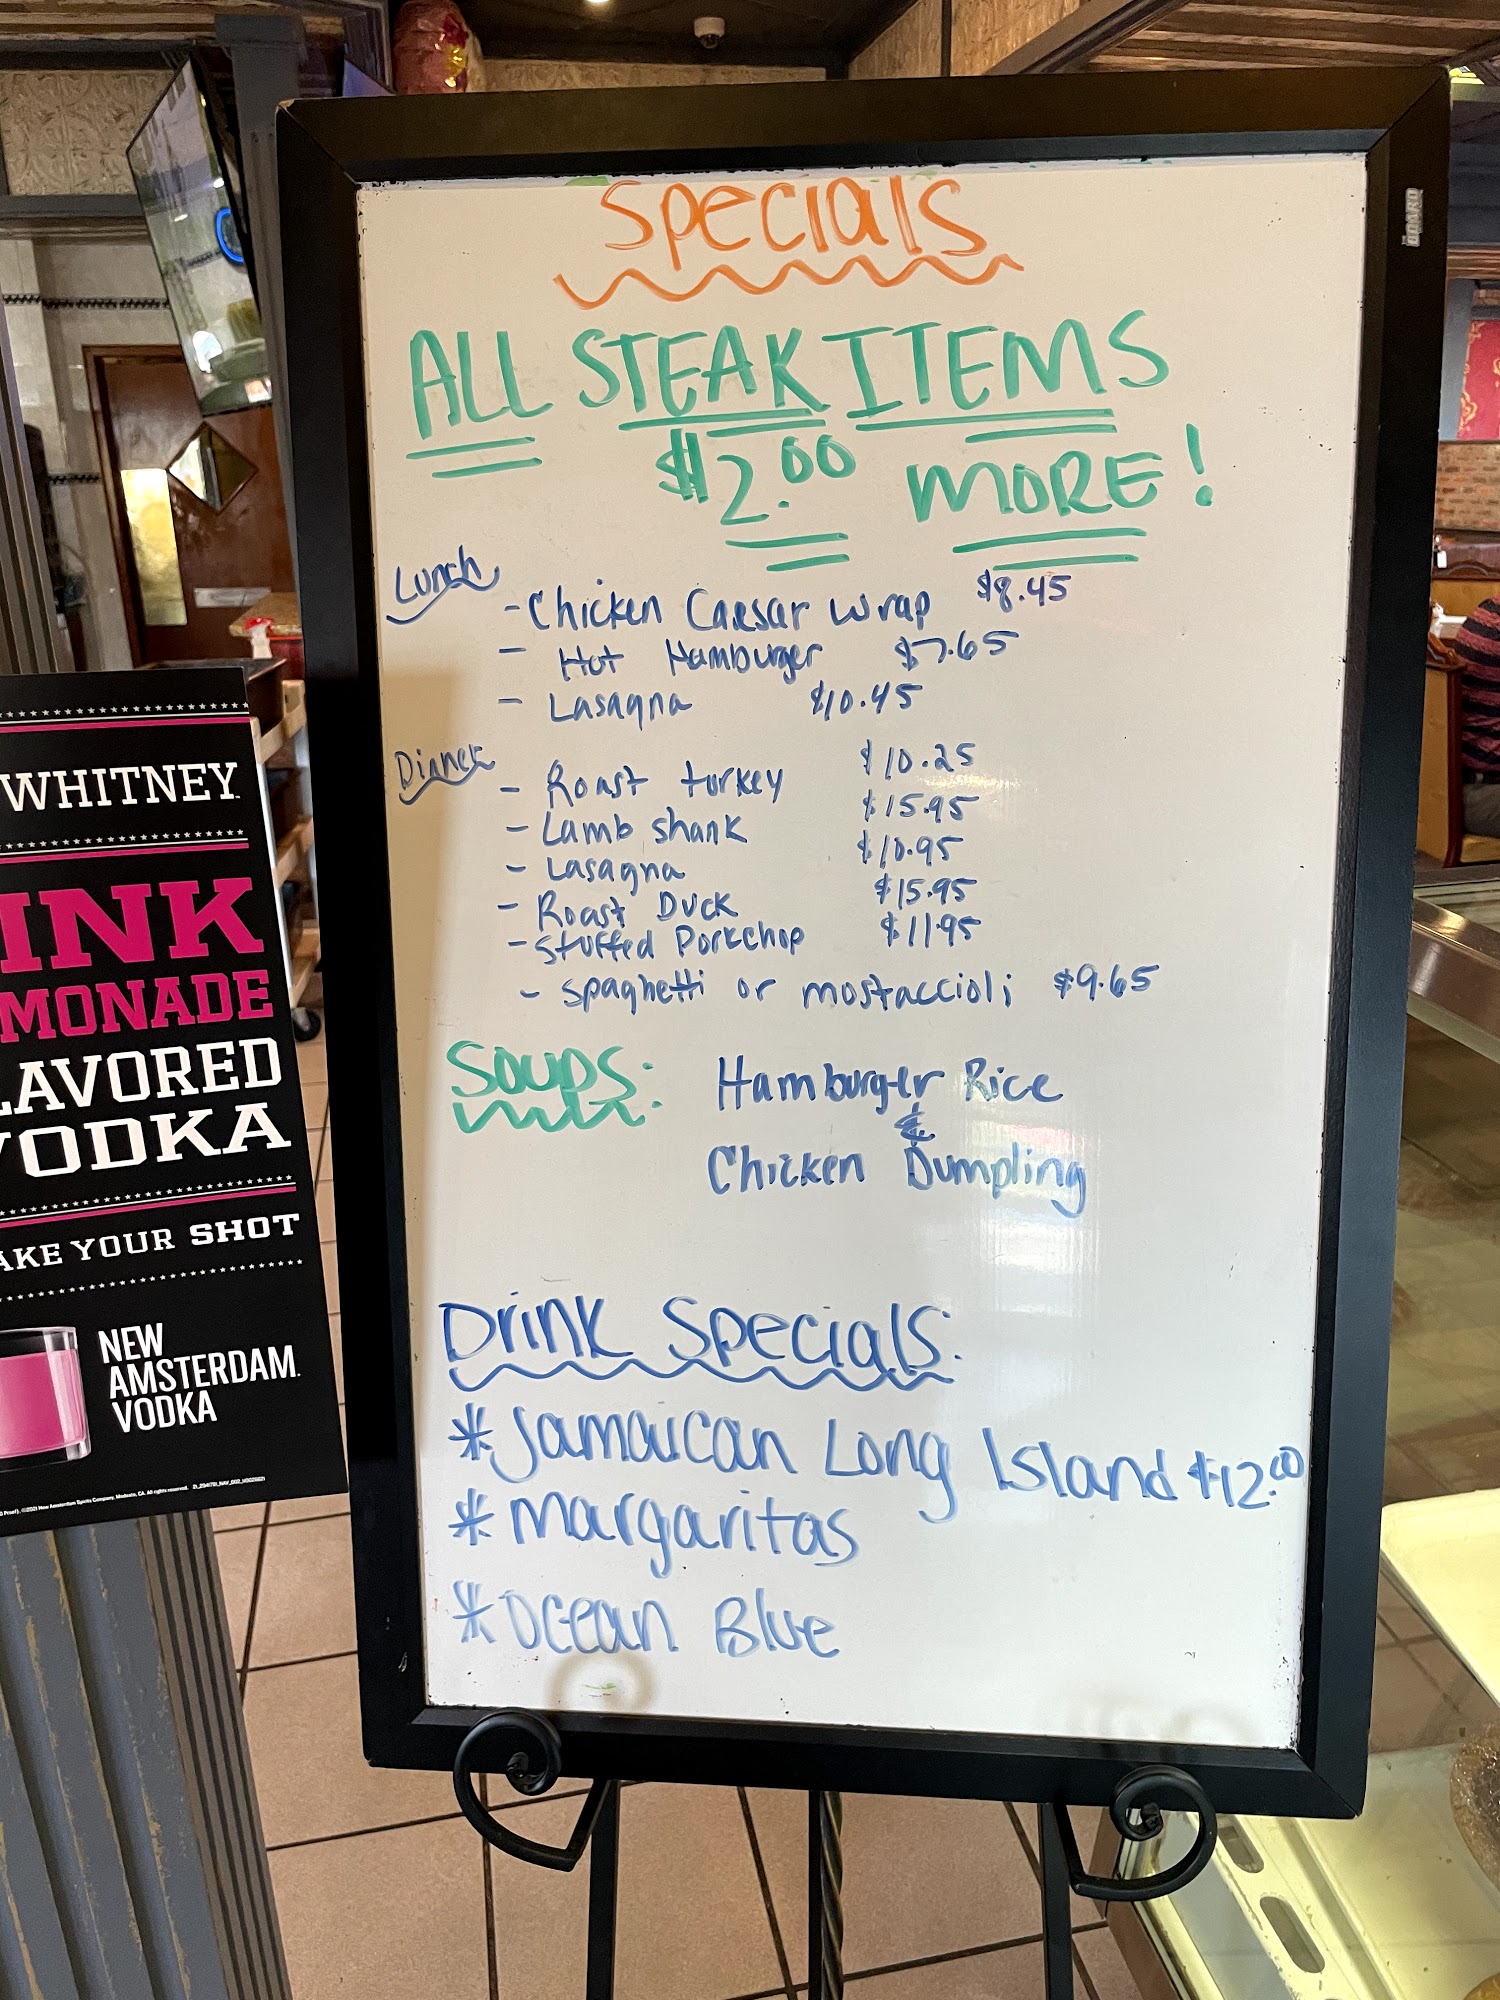 Specials
ALL STEAK ITEMS
$2.00 MORE!
Lunch
- Chicken Caesar Wrap $8.45
- Hot Hamburger $7.65
- Lasagna $10.45
Dinner
- Roast turkey $10.25
- Lamb shank $15.95
- Lasagna $10.95
- Roast Duck $15.95
- Stuffed Porkchop $11.95
- Spaghetti or mostaccioli $9.65
Soups: Hamburger Rice
&
Chicken Dumpling
Drink Specials:
* Jamaican Long Island $12.00
* Margaritas
* Ocean Blue
WHITNEY.
INK
MONADE
LAVORED
VODKA
AKE YOUR SHOT
NEW
AMSTERDAM.
VODKA